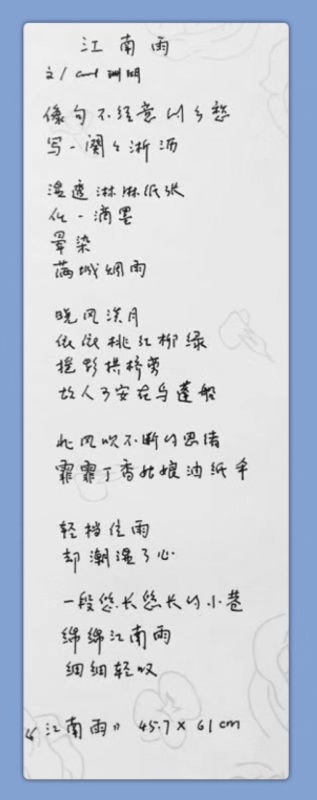 江南雨
文/ carol 珊明
像句不经意的乡愁
写一阕上淅沥
湿透淋淋纸张
化一滴墨
晕染
满城烟雨
晚风淡月
依依桃红柳绿
摇影拱桥旁
故人可安在乌蓬船
北风吹不断的思绪
霏霏丁香姑娘油纸伞
轻挡住雨
却潮湿了心
一段悠长悠长的小巷
绵绵江南雨
细细轻叹
《江南雨》 45.7 × 61 cm